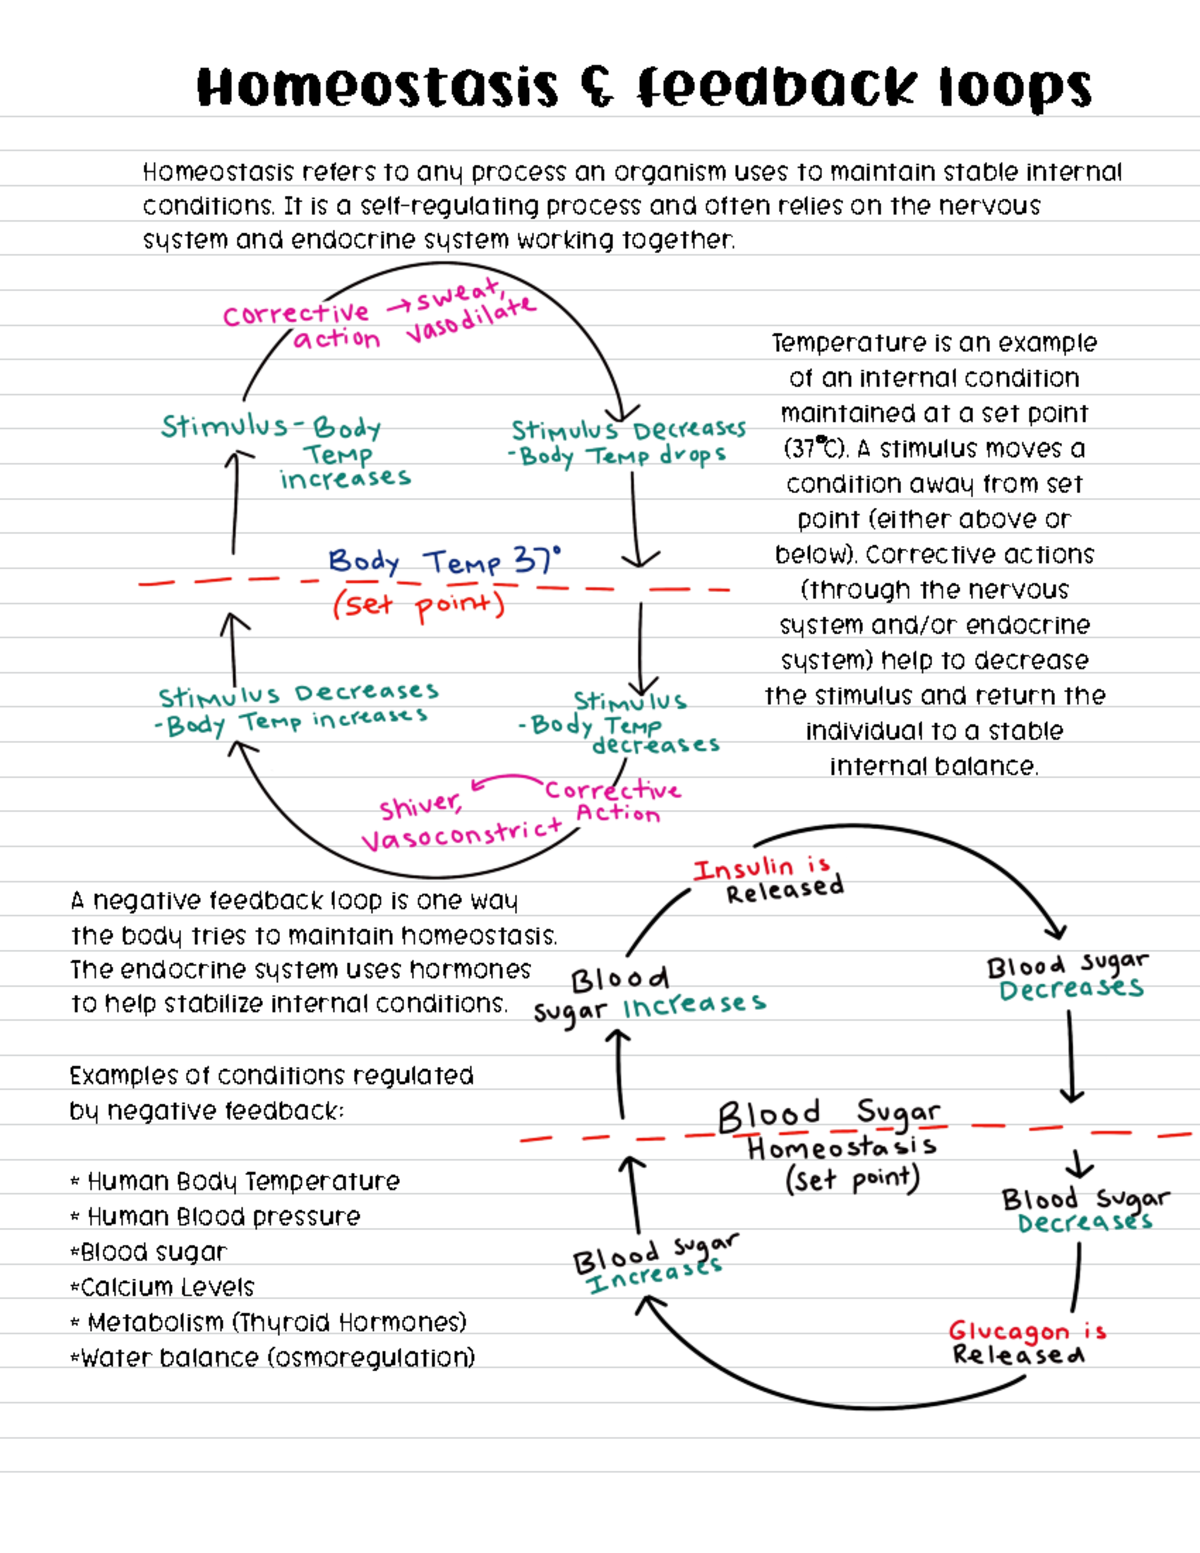 Homeostasis & feedback loops
Homeostasis refers to any process an organism uses to maintain stable internal
conditions. It is a self-regulating process and often relies on the nervous
system and endocrine system working together.
Corrective → sweat,
action vasodilate
Stimulus - Body
Temp
increases
Stimulus Decreases
- Body Temp drops
Body Temp 37°
(set point)
Stimulus Decreases
- Body Temp increases
Stimulus
- Body Temp
decreases
Corrective
Action
Shiver,
Vasoconstrict
Temperature is an example
of an internal condition
maintained at a set point
(37°C). A stimulus moves a
condition away from set
point (either above or
below). Corrective actions
(through the nervous
system and/or endocrine
system) help to decrease
the stimulus and return the
individual to a stable
internal balance.
A negative feedback loop is one way
the body tries to maintain homeostasis.
The endocrine system uses hormones
to help stabilize internal conditions.
Examples of conditions regulated
by negative feedback:
* Human Body Temperature
* Human Blood pressure
*Blood sugar
*Calcium Levels
* Metabolism (Thyroid Hormones)
*Water balance (osmoregulation)
Insulin is
Released
Blood
sugar increases
Blood Sugar
Decreases
Blood Sugar
Homeostasis
(set point)
Blood Sugar
Decreases
Blood Sugar
Increases
Glucagon is
Released